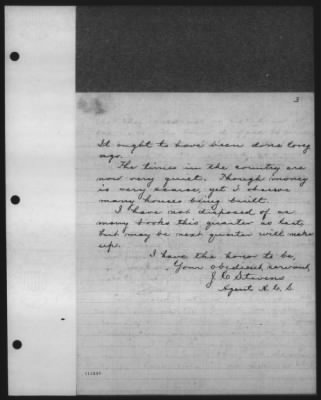 3
It ought to have been done long
ago.
The times in the country are
now very quiet. Though money
is very scarce, yet I observe
many houses being built.
I have not disposed of as
many books this quarter as last,
but may be next quarter will make
up.
I have the honor to be,
Your obedient servant,
J. C. Stevens
Agent A. C. S.